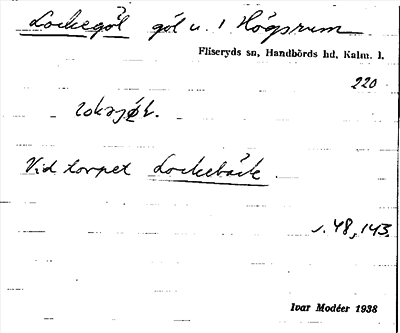 Lockegöl göl u. 1 Högsrum
Fliseryds sn, Handbörds hd, Kalm. l.
220
Vid torpet Lockebäck
s. 48, 143.
Ivar Modéer 1938